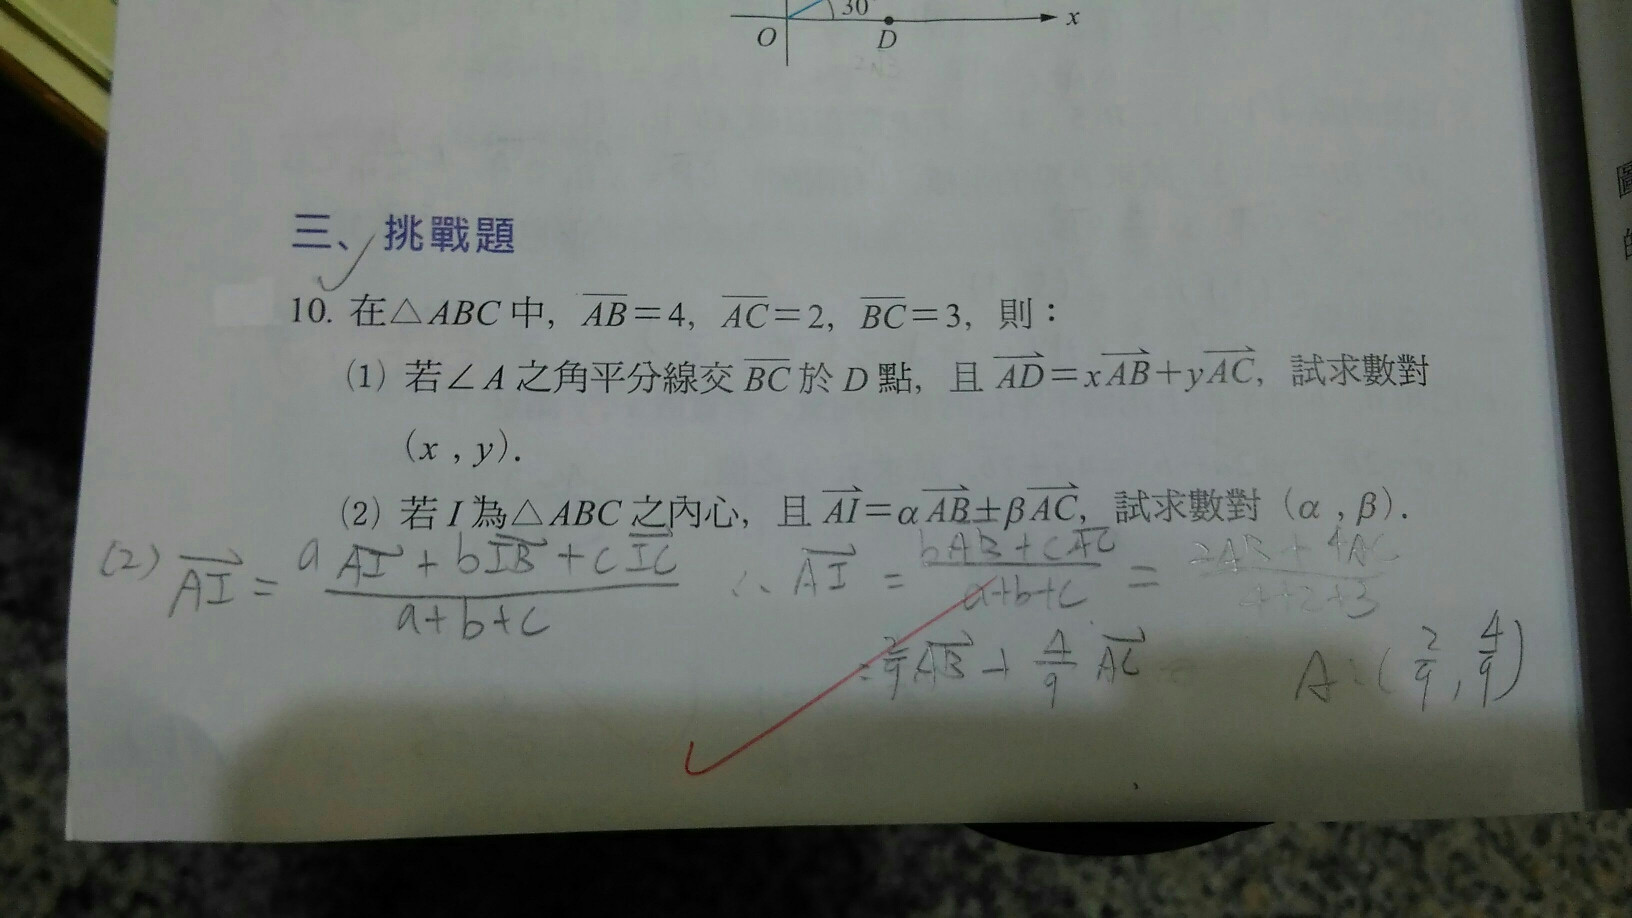 30°
x
O
D
三、挑戰題
10. 在△ABC 中, AB=4, AC=2, BC=3, 則：
(1) 若∠A 之角平分線交 BC 於 D 點, 且 AD=xAB+yAC, 試求數對
(x , y).
(2) 若 I 為△ABC 之內心, 且 AI=αAB+βAC, 試求數對 (α , β).
(2) AI = aAI + bIB + cIC / a+b+c ∴ AI = bAB + cAC / a+b+c = 2AB + 4AC / 4+2+3
= 2/9 AB + 4/9 AC A:(2/9, 4/9)